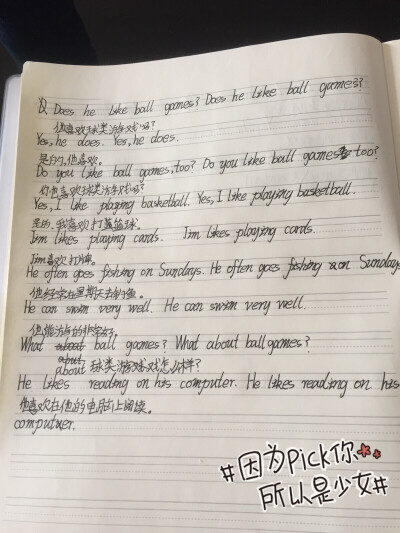 Q Does he like ball games? Does he like ball games?
他喜欢球类游戏吗?
Yes, he does. Yes, he does.
是的,他喜欢。
Do you like ball games, too? Do you like ball games too?
你也喜欢球类游戏吗?
Yes, I like playing basketball. Yes, I like playing basketball.
是的,我喜欢打篮球。
Jim likes playing cards. Jim likes playing cards.
Jim喜欢打牌。
He often goes fishing on Sundays. He often goes fishing on Sundays
他经常在星期天去钓鱼。
He can swim very well. He can swim very well.
他游泳的非常好。
What about ball games? What about ball games?
about
about 球类游戏怎么样?
He likes reading on his computer. He likes reading on his
他喜欢在他的电脑上阅读。
computuer.
#因为Pick你
所以是少女#